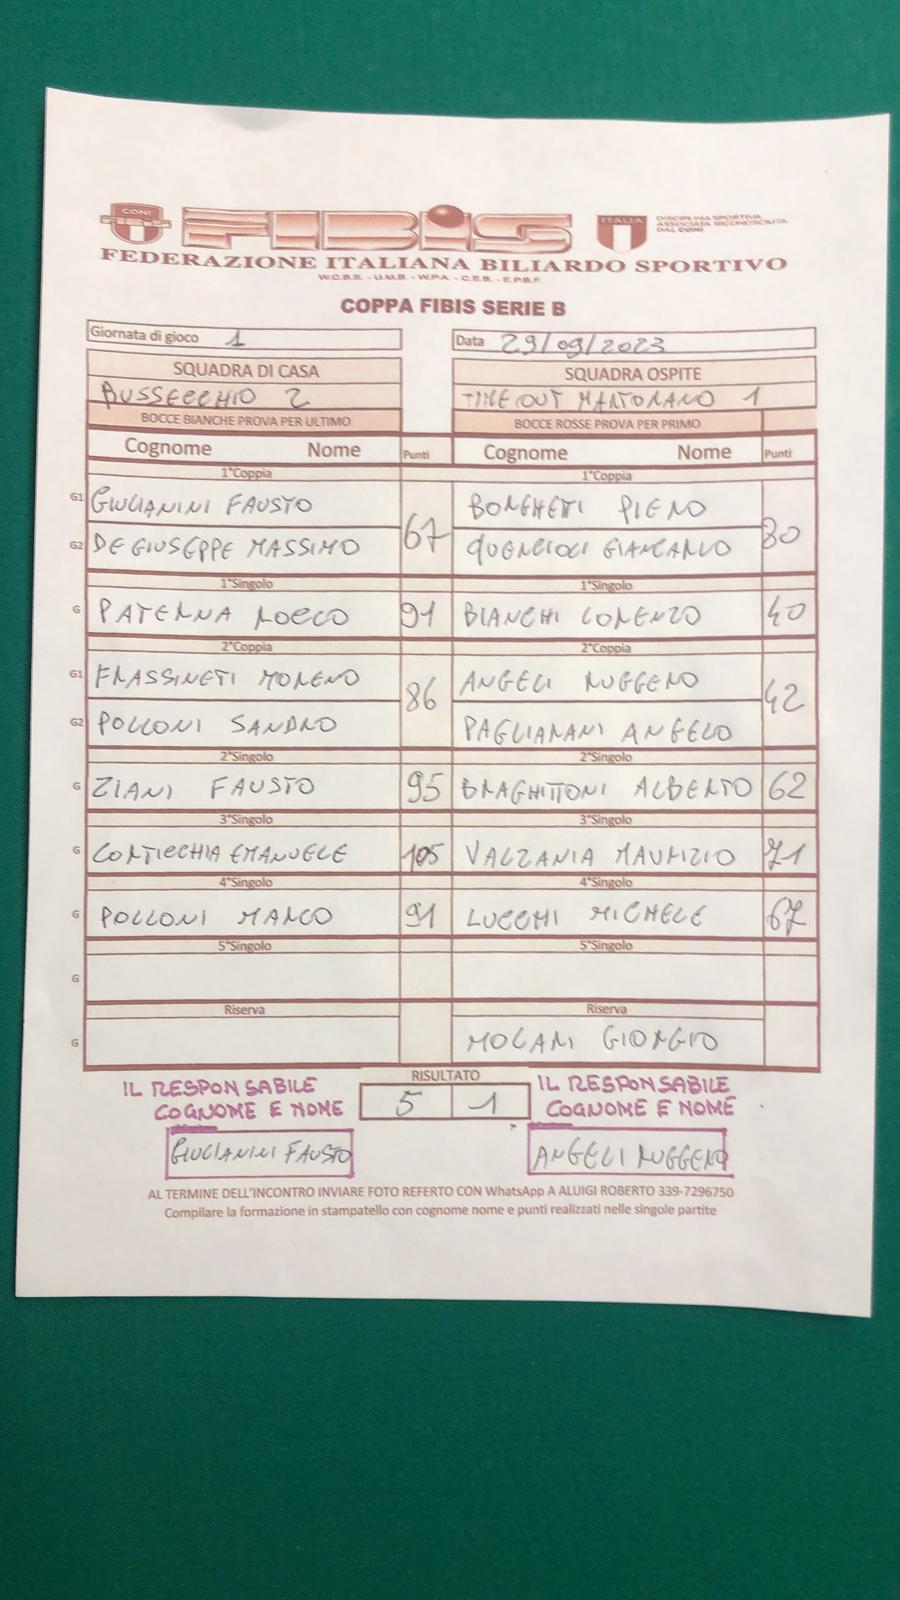 CONI
FIBiS
ITALIA
DISCIPLINA SPORTIVA
ASSOCIATA RICONOSCIUTA
DAL CONI
FEDERAZIONE ITALIANA BILIARDO SPORTIVO
W.C.B.S. - U.M.B. - W.P.A. - C.E.B. - E.P.B.F.
COPPA FIBIS SERIE B
Giornata di gioco 1 Data 29/09/2023
SQUADRA DI CASA SQUADRA OSPITE
BUSSECCHIO 2 TIME OUT MARTORANO 1
BOCCE BIANCHE PROVA PER ULTIMO BOCCE ROSSE PROVA PER PRIMO
Cognome Nome Punti Cognome Nome Punti
1°Coppia 1°Coppia
G1 GIULIANINI FAUSTO 67 BORGHETI PIERO 80
G2 DE GIUSEPPE MASSIMO QUERCIOLI GIANCARLO
1°Singolo 1°Singolo
G PATERNA ROCCO 91 BIANCHI LORENZO 40
2°Coppia 2°Coppia
G1 FRASSINETI MORENO 86 ANGELI RUGGERO 42
G2 POLLONI SANDRO PAGLIARANI ANGELO
2°Singolo 2°Singolo
G ZIANI FAUSTO 95 BRAGHITTONI ALBERTO 62
3°Singolo 3°Singolo
G CORTECCHIA EMANUELE 105 VALZANIA MAURIZIO 71
4°Singolo 4°Singolo
G POLLONI MARCO 91 LUCCHI MICHELE 67
5°Singolo 5°Singolo
G
Riserva Riserva
G MOLARI GIORGIO
RISULTATO
5 1
IL RESPONSABILE IL RESPONSABILE
COGNOME E NOME COGNOME E NOME
GIULIANINI FAUSTO ANGELI RUGGERO
AL TERMINE DELL'INCONTRO INVIARE FOTO REFERTO CON WhatsApp A ALUIGI ROBERTO 339-7296750
Compilare la formazione in stampatello con cognome nome e punti realizzati nelle singole partite